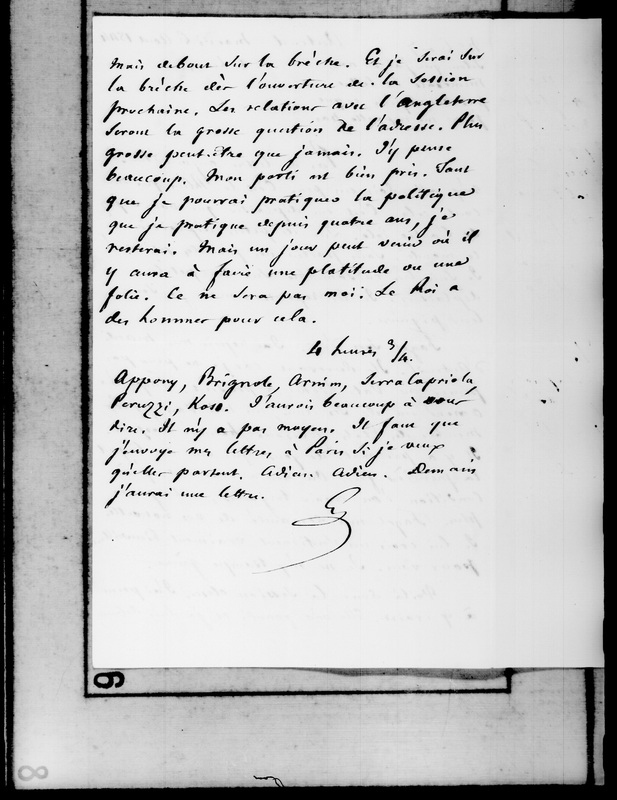 Mais debout sur la brèche. Et je serai sur
la brèche dès l'ouverture de la session
prochaine. Les relations avec l'Angleterre
seront la grosse question de l'adresse. Plus
grosse peut-être que jamais. J'y pense
beaucoup. Mon parti est bien pris. Tant
que je pourrai pratiquer la politique
que je pratique depuis quatre ans, je
resterai. Mais un jour peut venir où il
y aura à faire une platitude ou une
folie. Ce ne sera pas moi. Le Roi a
des hommes pour cela.
4 heures 3/4.
Appony, Brignole, Arnim, Serra Capriola,
Peruzzi, Koss. J'aurais beaucoup à vous
dire. Il n'y a pas moyen. Il faut que
j'envoye mes lettres à Paris si je veux
qu'elles partent. Adieu. Adieu. Demain
j'aurai une lettre.
G
9
8